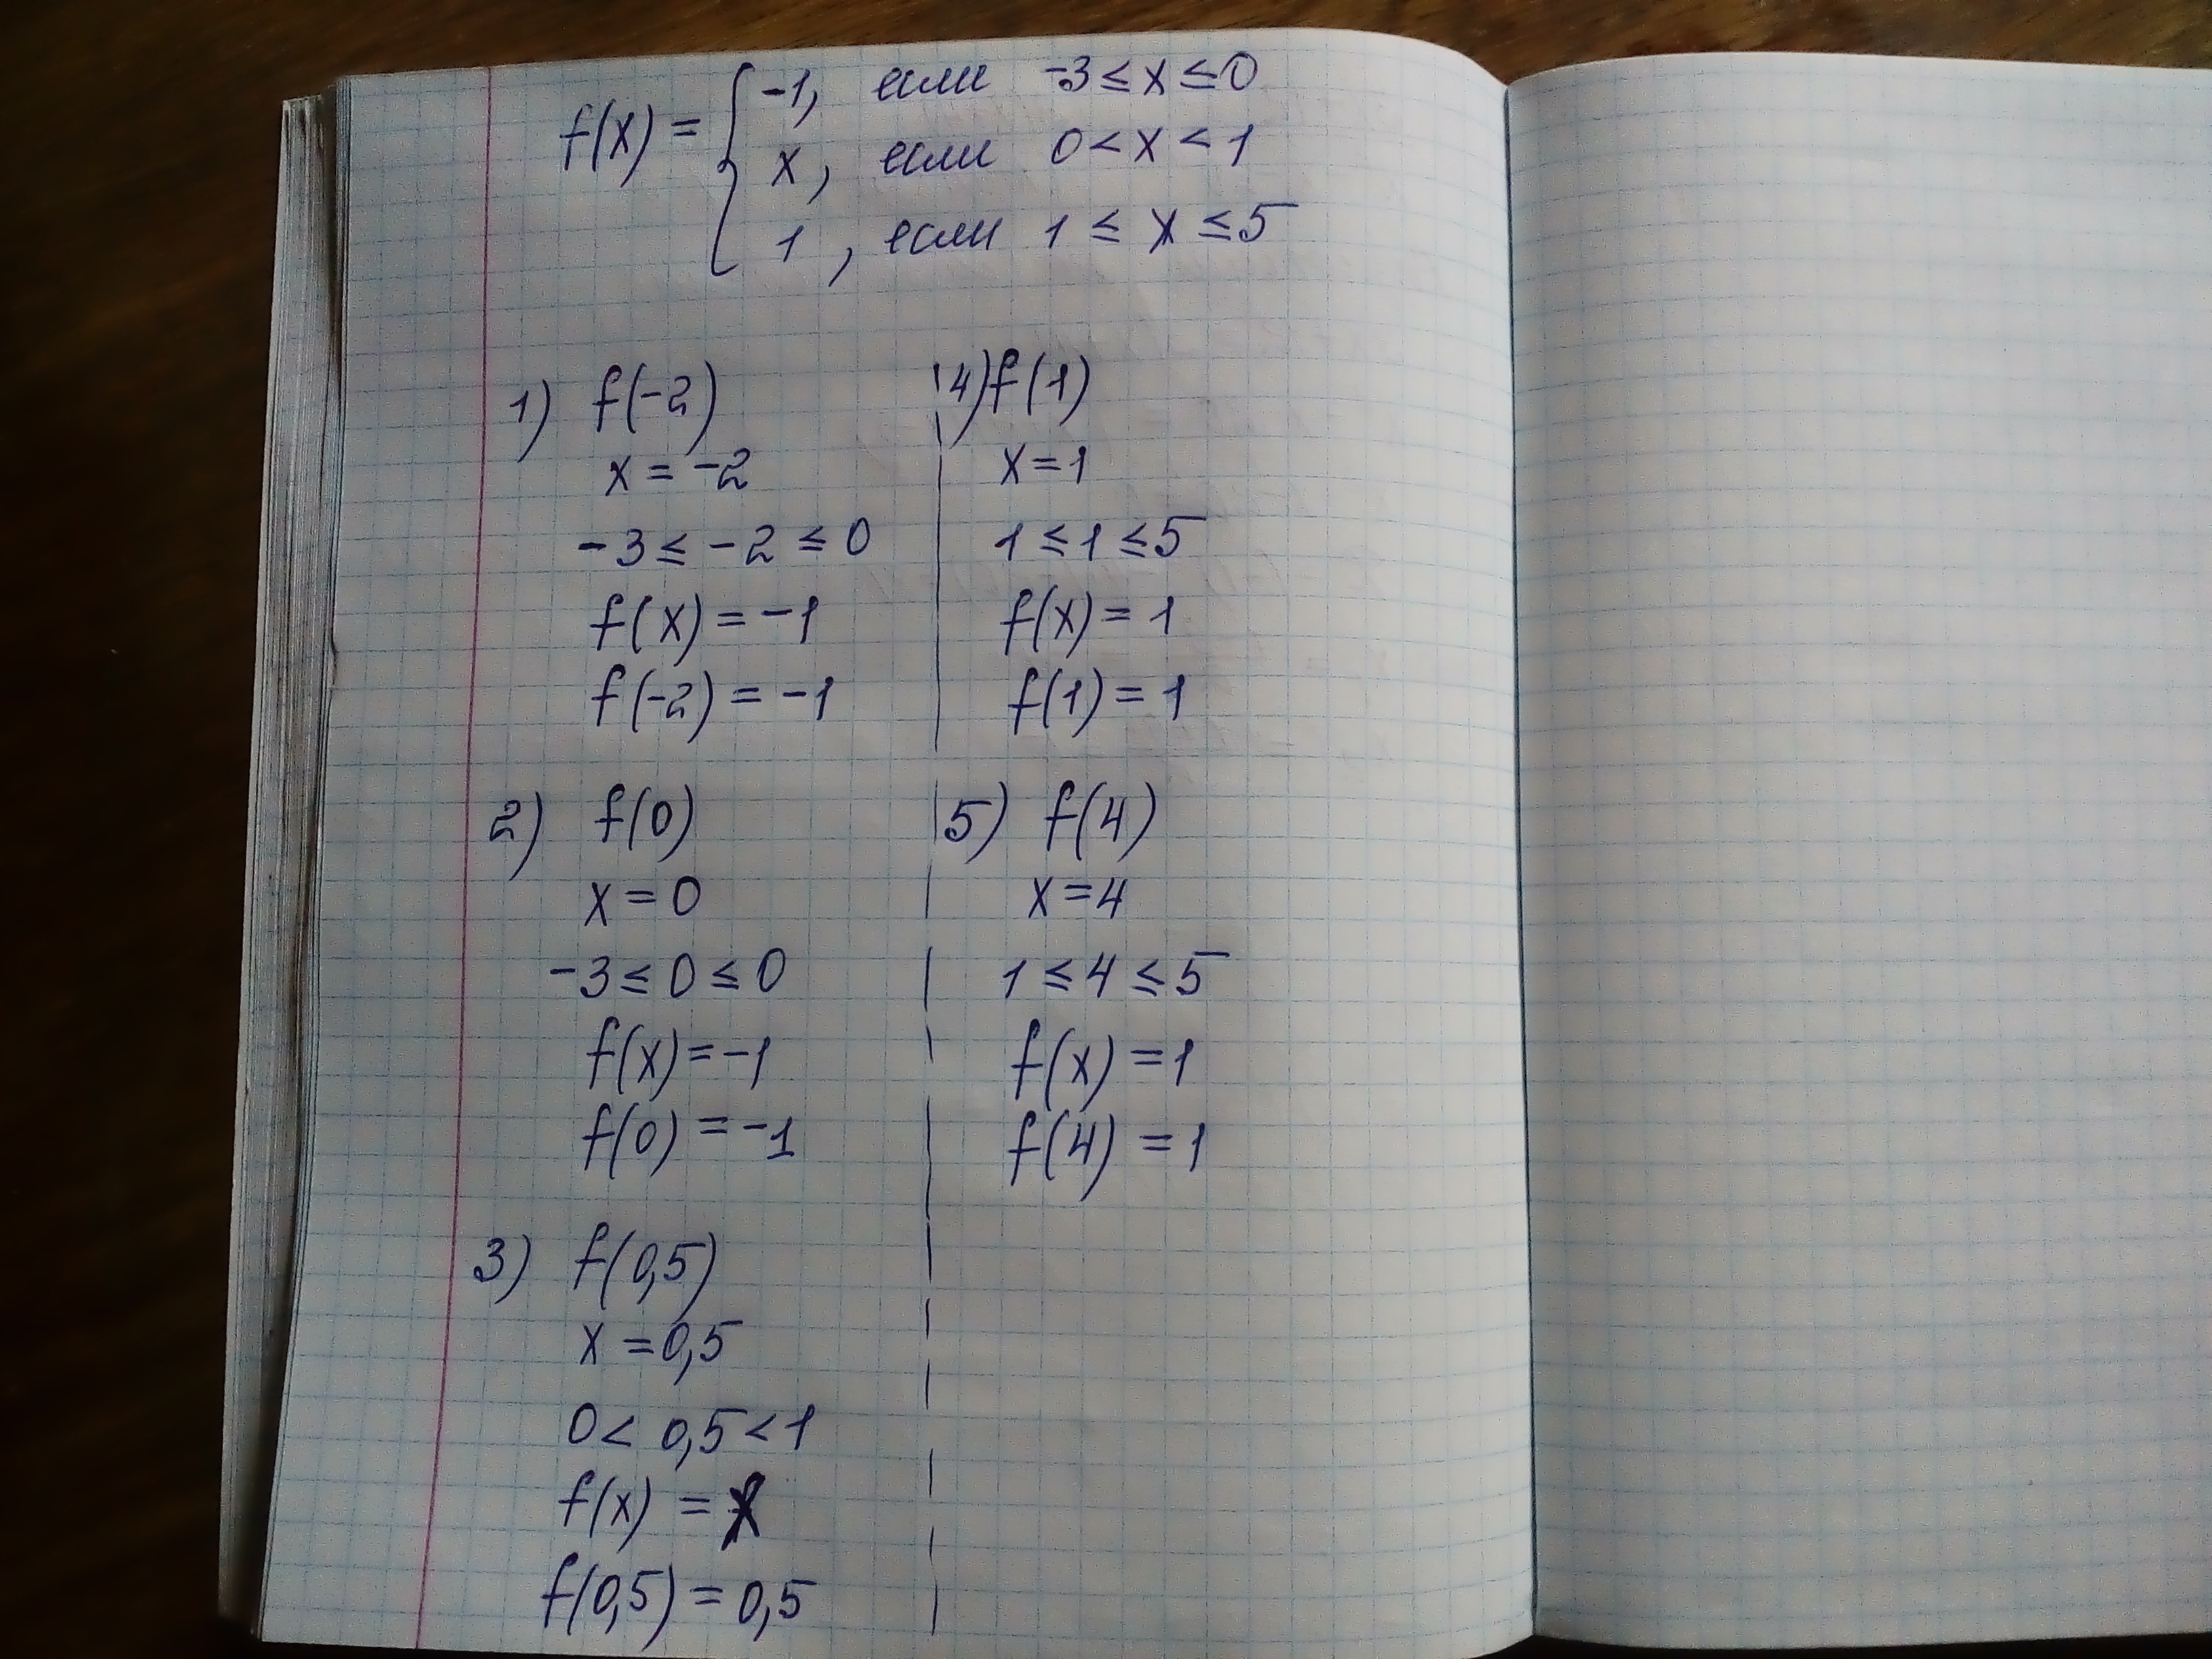 f(x) = { -1, если -3 ≤ x ≤ 0
x, если 0 < x < 1
1, если 1 ≤ x ≤ 5
1) f(-2)
x = -2
-3 ≤ -2 ≤ 0
f(x) = -1
f(-2) = -1
2) f(0)
x = 0
-3 ≤ 0 ≤ 0
f(x) = -1
f(0) = -1
3) f(0,5)
x = 0,5
0 < 0,5 < 1
f(x) = x
f(0,5) = 0,5
4) f(1)
x = 1
1 ≤ 1 ≤ 5
f(x) = 1
f(1) = 1
5) f(4)
x = 4
1 ≤ 4 ≤ 5
f(x) = 1
f(4) = 1